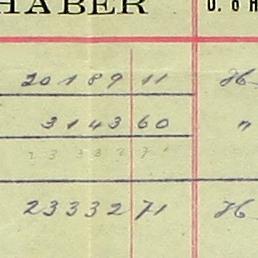 HABER D. ó H
20189 11 Hb
3143 60 "
23332 71
23332 71 Hb